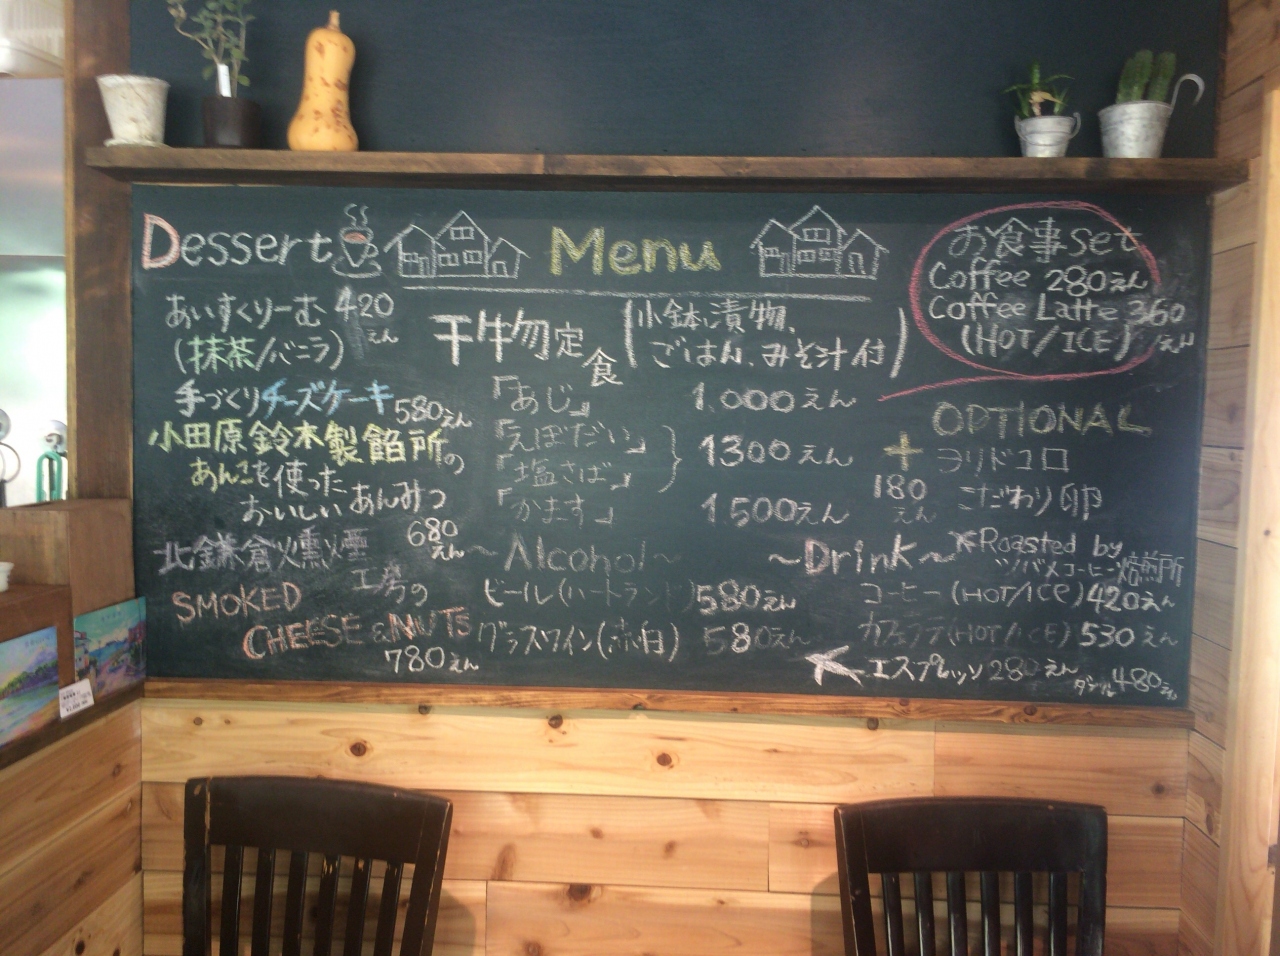 Dessert
あいすくりーむ 420えん
(抹茶/バニラ)
手づくりチーズケーキ
580えん
小田原鈴木製餡所の
あんこを使った
おいしいあんみつ
680えん
北鎌倉燻煙
工房の
SMOKED
CHEESE & NUTS
780えん
Menu
干物定食 (小鉢、漬物、
ごはん、みそ汁付)
「あじ」 1,000えん
「えぼだい」
「塩さば」 1300えん
「かます」 1500えん
~Alcohol~
ビール(ハートランド) 580えん
グラスワイン(赤白) 580えん
お食事set
Coffee 280えん
Coffee Latte 360えん
(HOT/ICE)
OPTIONAL
+ ヨリドコロ
180えん こだわり卵
~Drink~ Roasted by
ツバメコーヒー焙煎所
コーヒー(HOT/ICE) 420えん
カフェラテ(HOT/ICE) 530えん
エスプレッソ 280えん
ダブル 480えん